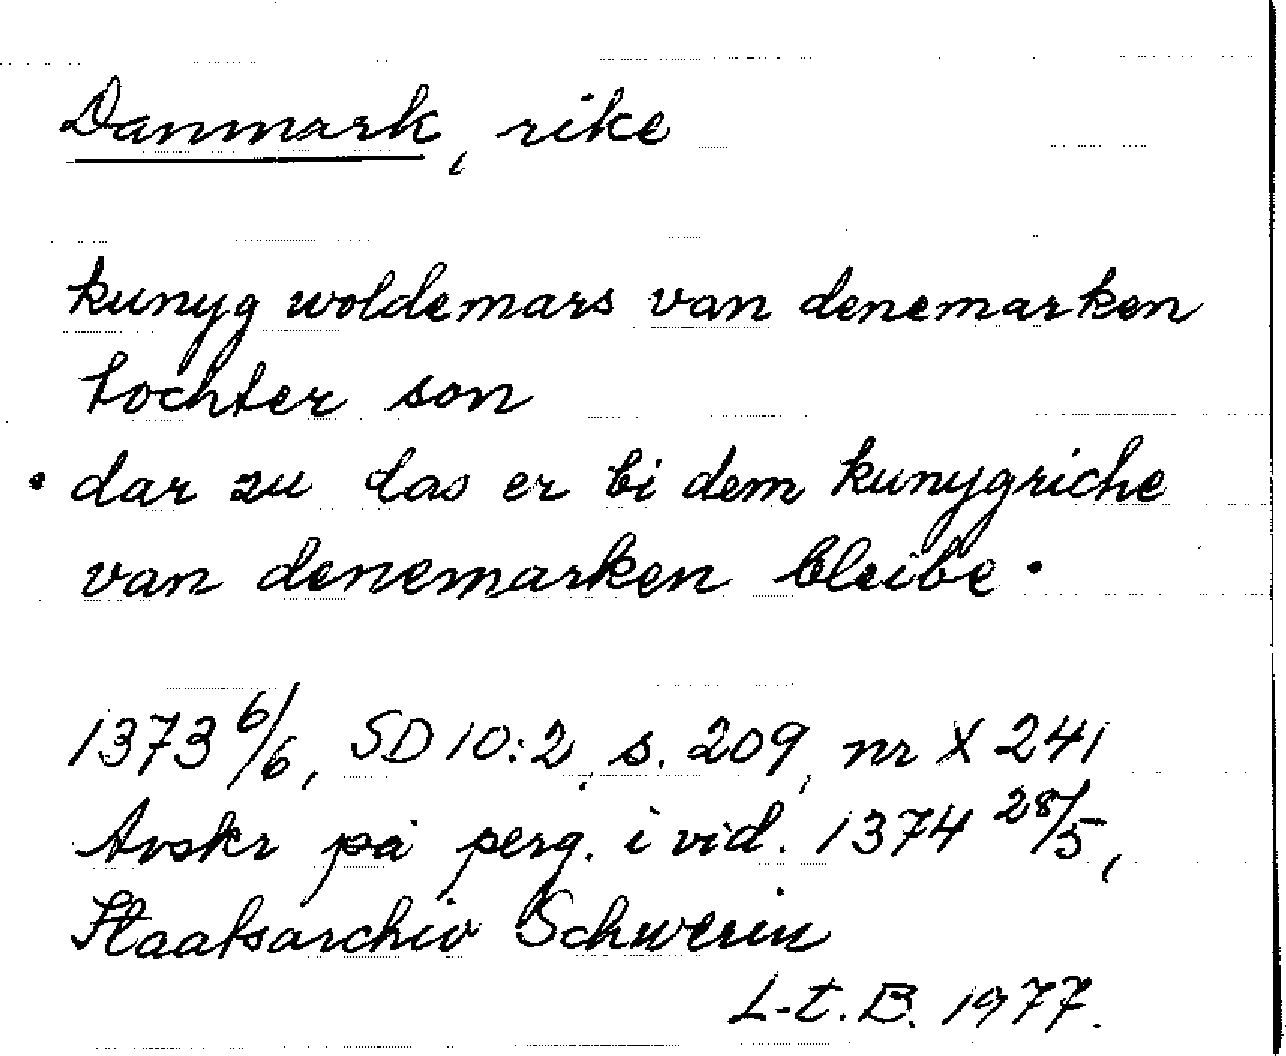 Danmark, rike
kunyg woldemars van denemarken
tochter son
• dar zu das er bi dem kunygriche
van denemarken bleibe •
1373 6/6, SD 10:2, s. 209, nr X 241
Avskr på perg. i vid. 1374 28/5,
Staatsarchiv Schwerin
L-t. B. 1977.